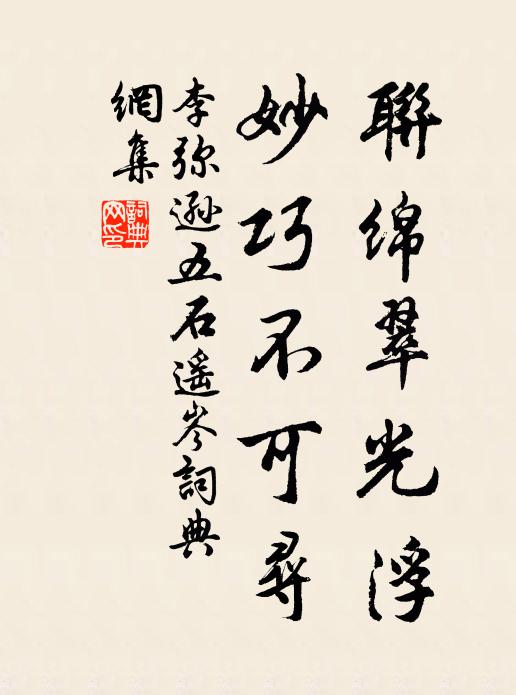 聯綿翠光浮
妙巧不可尋
李弥遜五石遥岑詞典
網集
詞典网印